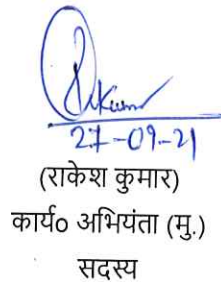 27-09-21
(राकेश कुमार)
कार्य० अभियंता (मु.)
सदस्य